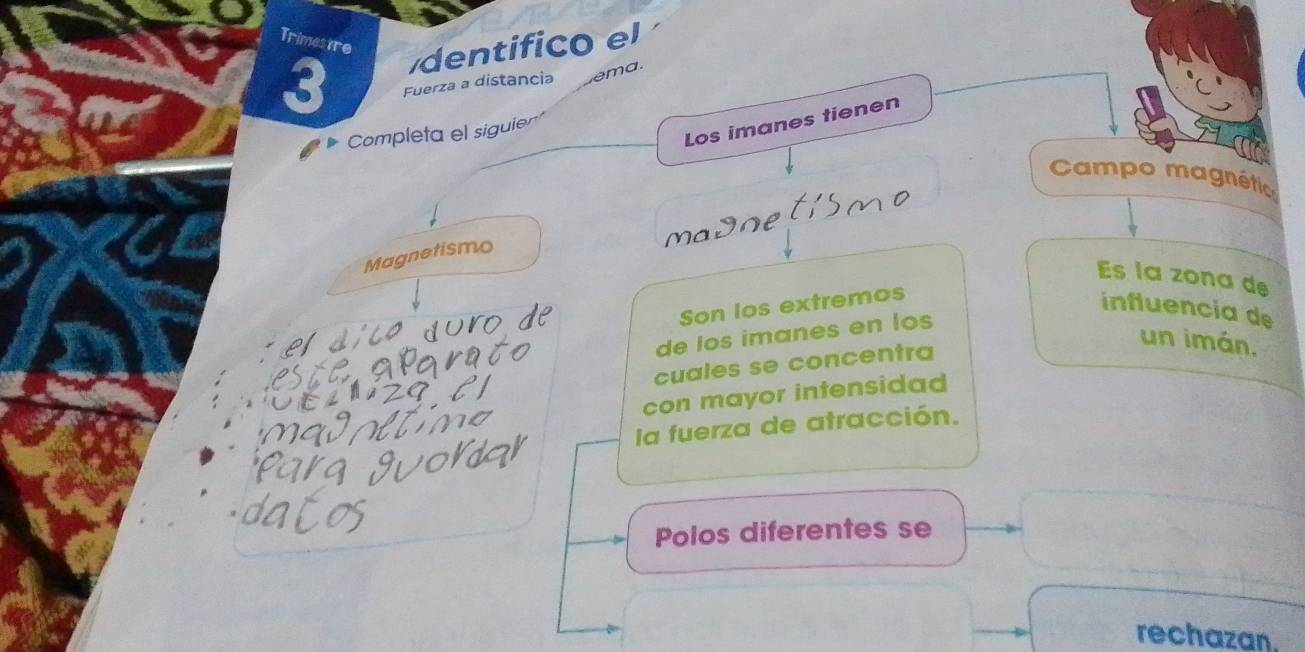 Trimestre
3
Identifico el
Fuerza a distancia
ema.
Completa el siguien
Los imanes tienen
Magnetismo
magnetismo
Campo magnétic
el dico duro de
este aparato
utiniza el
magnetimo
para guordar
datos
Son los extremos
de los imanes en los
cuales se concentra
con mayor intensidad
la fuerza de atracción.
Es la zona de
influencia de
un imán.
Polos diferentes se
rechazan.